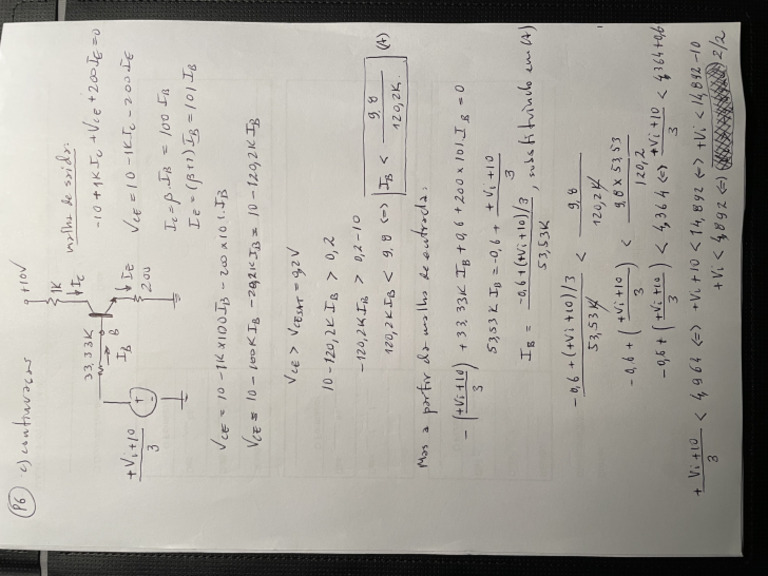 P6 c) continuação
+10V
1K
Ic
33,33K
B
IB
IE
200
+Vi+10
3
malha de saída:
-10+1KIc+VCE+200IE=0
VCE=10-1KIc-200IE
Ic=β.IB=100IB
IE=(β+1)IB=101IB
VCE=10-1K×100IB-200×101.IB
VCE=10-100KIB-20,2KIB=10-120,2KIB
VCE>VCESAT=0,2V
10-120,2KIB>0,2
-120,2KIB>0,2-10
120,2KIB<9,8 <=> IB < 9,8/120,2K. (A)
Mas a partir da malha de entrada:
-(+Vi+10)/3+33,33KIB+0,6+200×101.IB=0
53,53KIB=-0,6+(+Vi+10)/3
IB=(-0,6+(+Vi+10)/3)/53,53K, substituindo em (A)
(-0,6+(+Vi+10)/3)/53,53K < 9,8/120,2K
-0,6+((+Vi+10)/3) < 9,8×53,53/120,2
-0,6+((+Vi+10)/3)<4,364 <=> (+Vi+10)/3<4,364+0,6
+(Vi+10)/3<4,964 <=> +Vi+10<14,892 <=> +Vi<14,892-10
+Vi<4,892 <=>
2/2